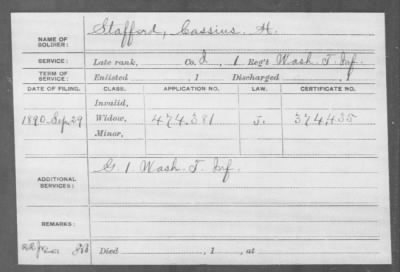 NAME OF SOLDIER: Stafford, Cassius H.
SERVICE: Late rank, Co. D, 1 Reg't Wash. T. Inf.
TERM OF SERVICE: Enlisted , 1 Discharged , 1
DATE OF FILING. CLASS. APPLICATION NO. LAW. CERTIFICATE NO.
Invalid,
1890 Sep 29 Widow, 474.381 374,435
Minor,
ADDITIONAL SERVICES: G. 1 Wash. T. Inf.
REMARKS:
Died , 1 , at